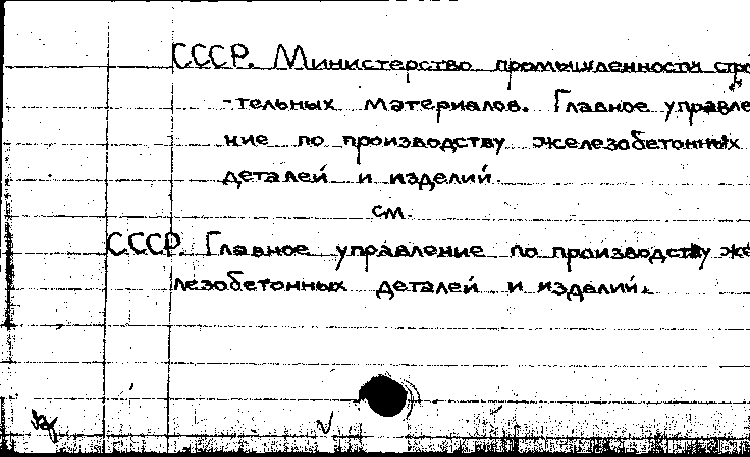 СССР. Министерство промышленности стро
-тельных материалов. Главное управле
ние по производству железобетонных
деталей и изделий.
см.
СССР. Главное управление по производству же
лезобетонных деталей и изделий.